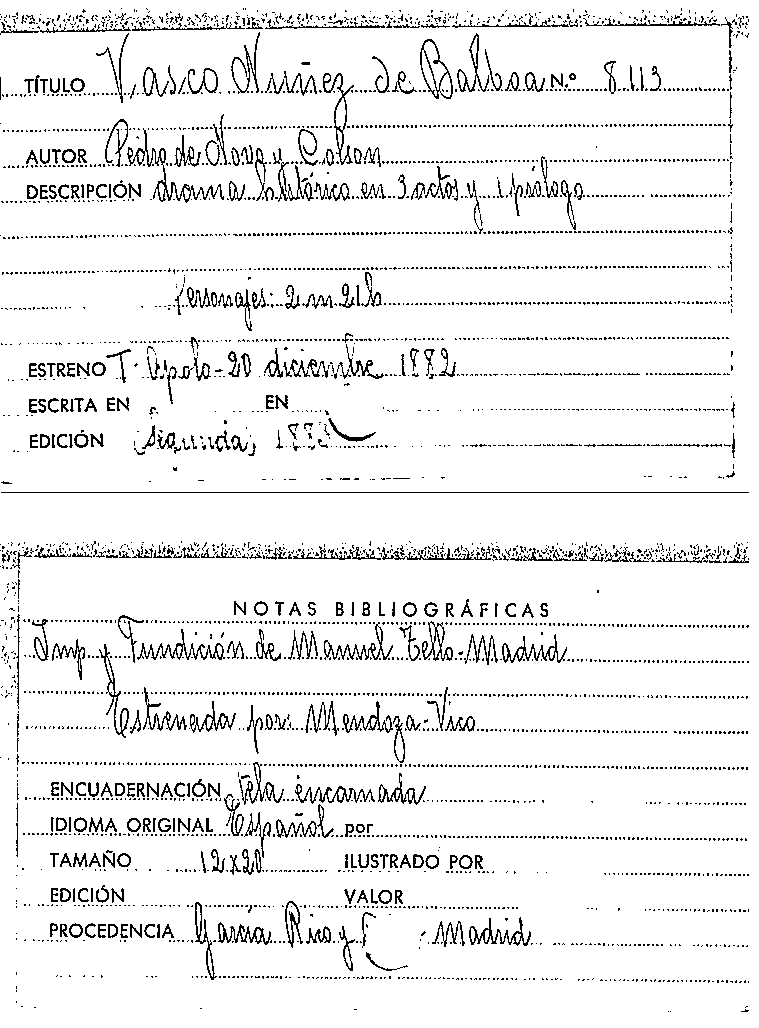 TÍTULO Vasco Nuñez de Balboa N.º 8113
AUTOR Pedro de Novo y Colson
DESCRIPCIÓN drama histórico en 3 actos y 1 prólogo
Personajes: 2 m 21 h
ESTRENO T. Apolo - 20 diciembre 1882
ESCRITA EN EN
EDICIÓN (Segunda)
NOTAS BIBLIOGRÁFICAS
Imp y Fundición de Manuel Tello - Madrid
Estrenada por: Mendoza - Vico
ENCUADERNACIÓN tela encarnada
IDIOMA ORIGINAL Español por
TAMAÑO 12x20 ILUSTRADO POR
EDICIÓN VALOR
PROCEDENCIA García Rico y - Madrid